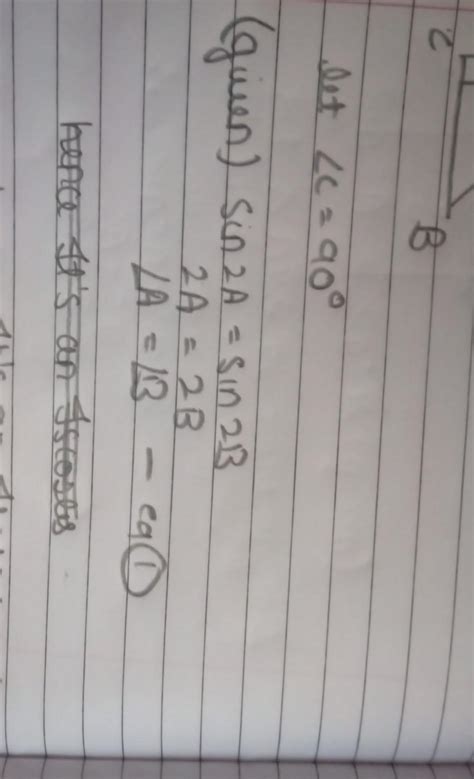 C B
let ∠C = 90°
(given) Sin2A = Sin2B
2A = 2B
∠A = ∠B - eq ①
hence It's an Isosceles